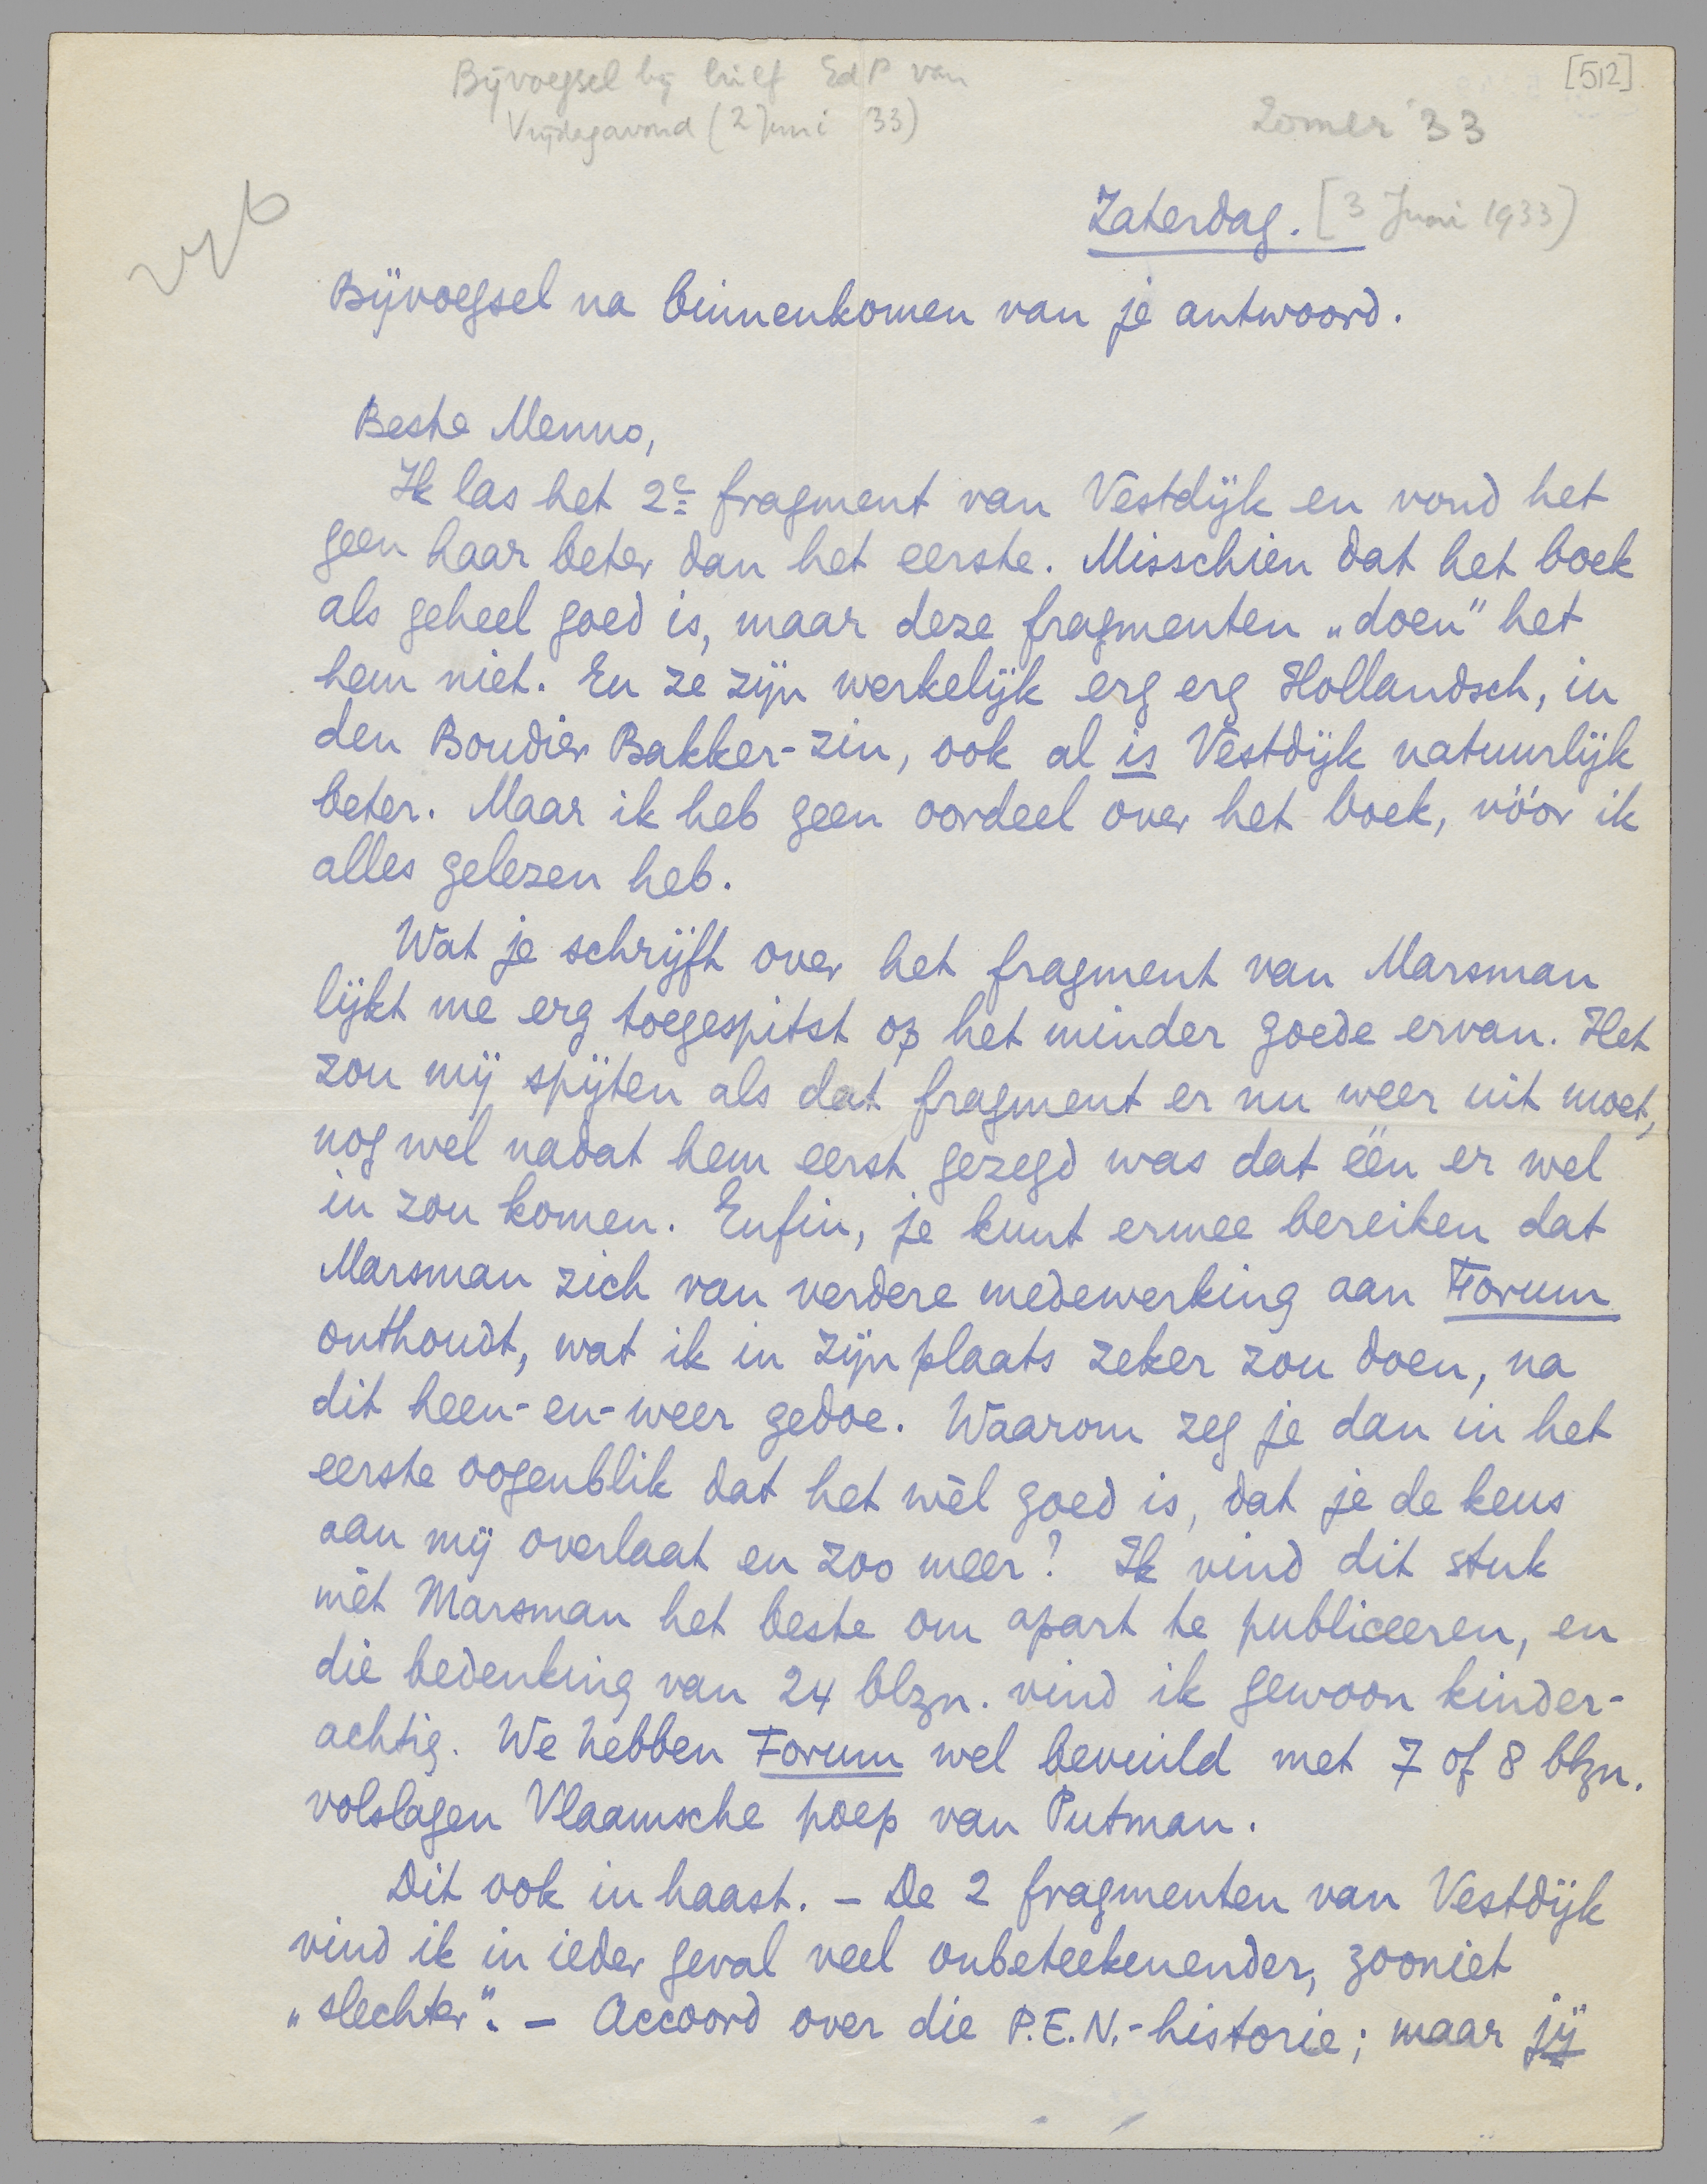 [512]
Bijvoegsel bij brief EdP van
Vrijdagavond (2 Juni 33)
Zomer '33
Zaterdag. [3 Juni 1933)
Bijvoegsel na binnenkomen van je antwoord.
Beste Menno,
Ik las het 2e fragment van Vestdijk en vond het
geen haar beter dan het eerste. Misschien dat het boek
als geheel goed is, maar deze fragmenten „doen" het
hem niet. En ze zijn werkelijk erg erg Hollandsch, in
den Boudier Bakker-zin, ook al is Vestdijk natuurlijk
beter. Maar ik heb geen oordeel over het boek, vóór ik
alles gelezen heb.
Wat je schrijft over het fragment van Marsman
lijkt me erg toegespitst op het minder goede ervan. Het
zou mij spijten als dat fragment er nu weer uit moet,
nog wel nadat hem eerst gezegd was dat één er wel
in zou komen. Enfin, je kunt ermee bereiken dat
Marsman zich van verdere medewerking aan Forum
onthoudt, wat ik in zijn plaats zeker zou doen, na
dit heen-en-weer gedoe. Waarom zeg je dan in het
eerste oogenblik dat het wèl goed is, dat je de keus
aan mij overlaat en zoo meer? Ik vind dit stuk
mèt Marsman het beste om apart te publiceeren, en
die bedenking van 24 blzn. vind ik gewoon kinder-
achtig. We hebben Forum wel bevuild met 7 of 8 blzn.
volslagen Vlaamsche poep van Putman.
Dit ook in haast. – De 2 fragmenten van Vestdijk
vind ik in ieder geval veel onbeteekenender, zooniet
„slechter". – Accoord over die P.E.N.-historie; maar jij